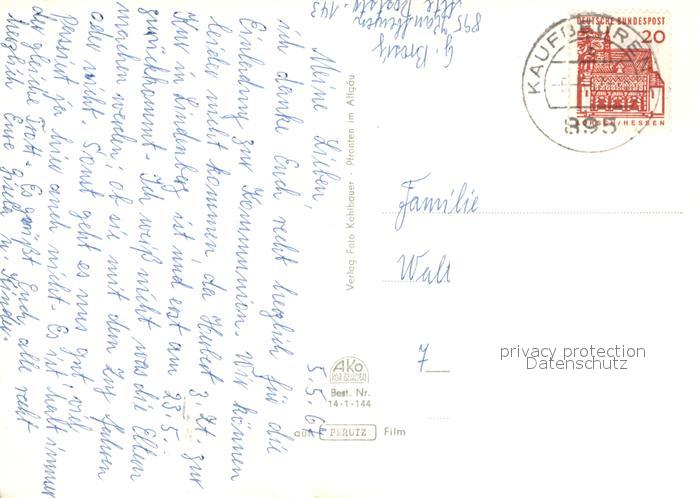 5.5.67
Meine Lieben,
ich danke Euch recht herzlich für die
Einladung zur Kommunion. Wir können
leider nicht kommen, da Hubert z. Zt. zur
Kur in Lindenberg ist und erst am 23.5.
zurückkommt. Ich weiß nicht was die Eltern
machen werden, ob sie mit dem Zug fahren
oder nicht. Sonst geht es uns gut, viel
passiert ja hier auch nicht. Es ist halt immer
der gleiche Trott. Es grüßt Euch alle recht
herzlich Eure Gisela u. Kinder.
G. Brosig
895 Kaufbeuren
Alte Poststr. 143
Verlag Foto Kohlbauer · Pfronten im Allgäu
DEUTSCHE BUNDESPOST
20
LORSCH/HESSEN
KAUFBEUREN
895
Familie
Walt
7
privacy protection
Datenschutz
AKO
Best. Nr.
14-1-144
auf PERUTZ Film